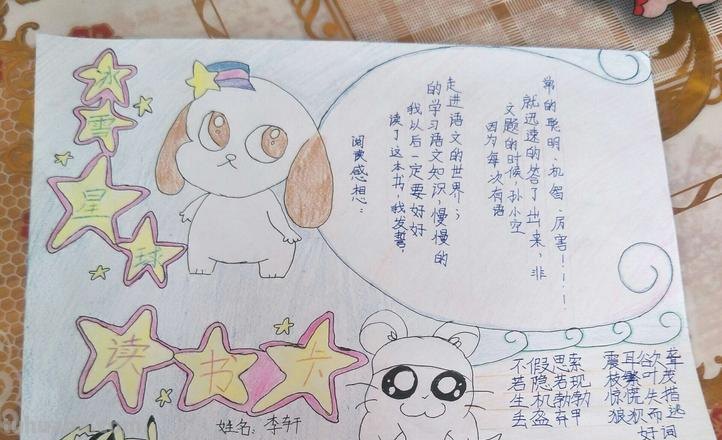 冰雪星球
读书卡
姓名：李轩
阅读感想：
读了这本书，我发誓，
我以后一定要好好
的学习语文知识，慢慢的
走进语文的世界；
因为每次有语
文题的时候，孙小空
就迅速的答了出来，非
常的聪明、机智、厉害！！！！
不假思索
若隐若现
生机勃勃
丢盔弃甲
震耳欲聋
枝繁叶茂
惊慌失措
狼狈而逃
好词